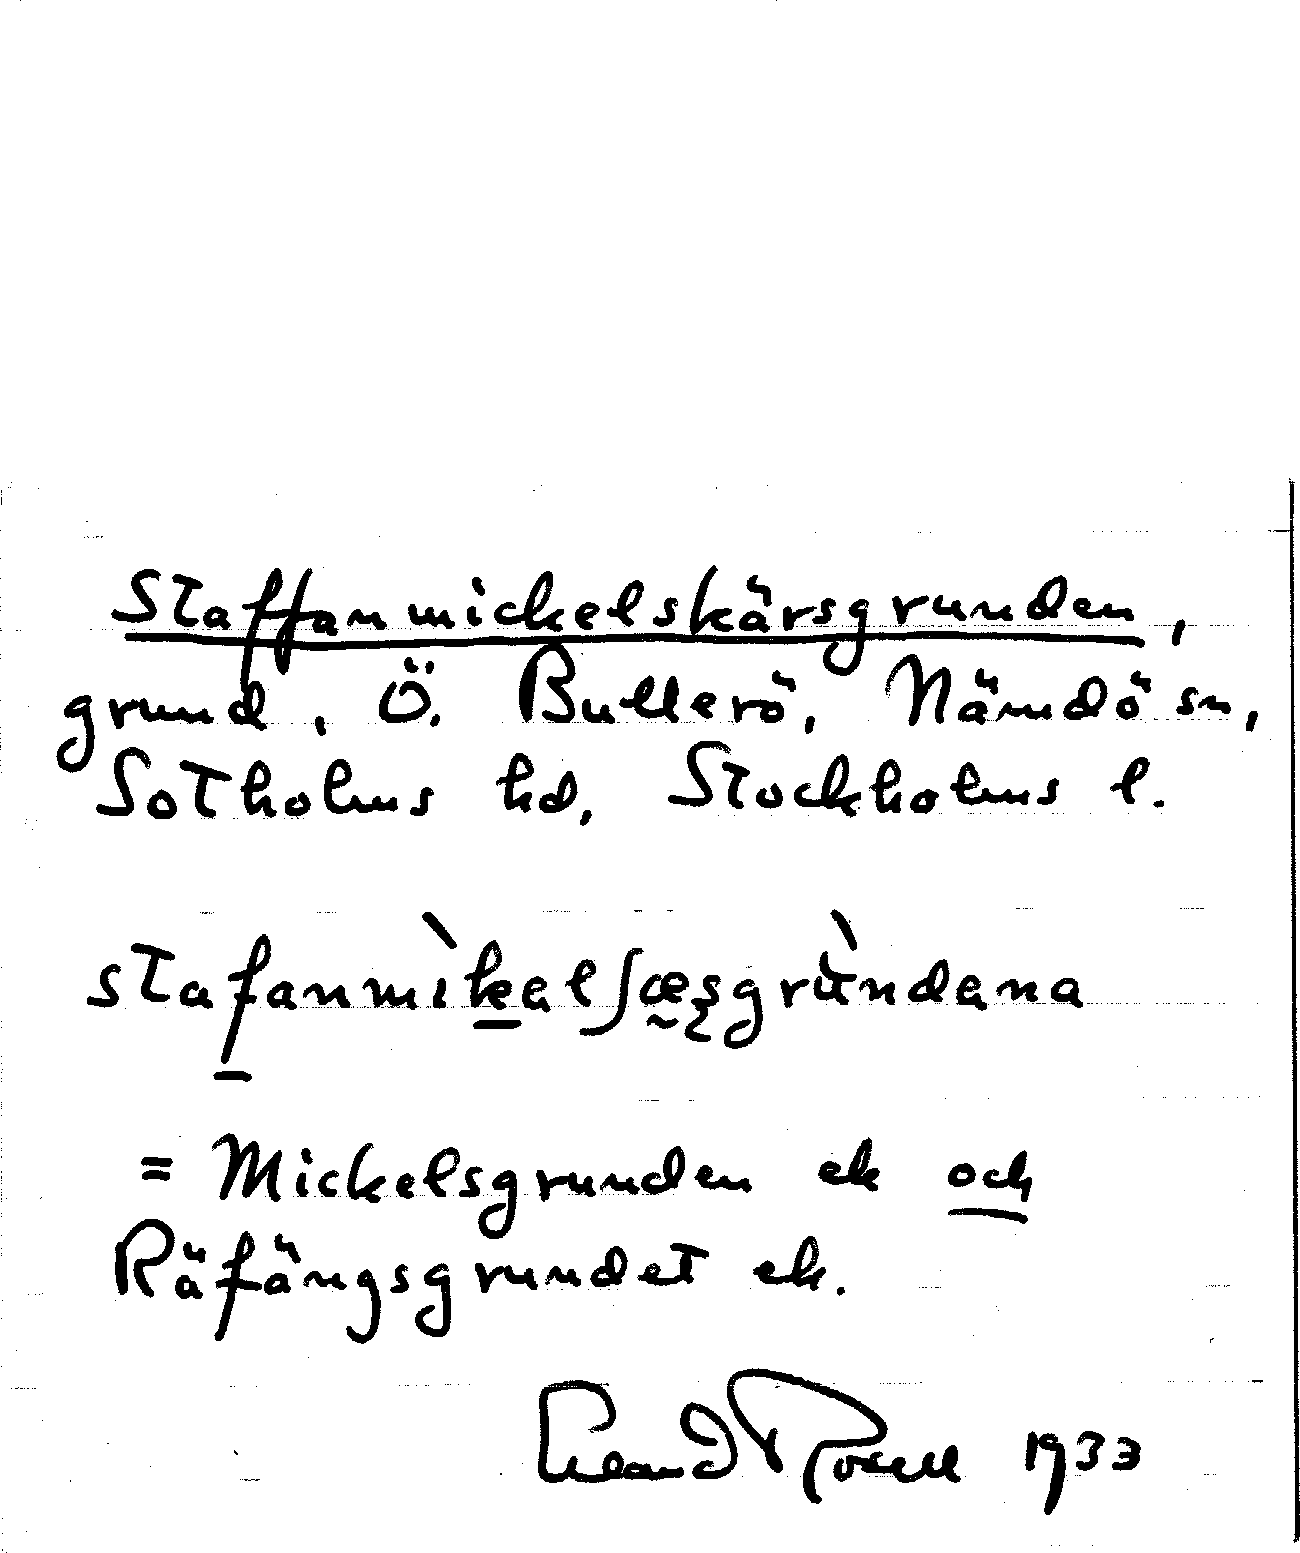 Staffanmickelskärsgrunden,
grund, Ö. Bullerö, Nämdö sn,
Sotholms hd, Stockholms l.
stafanmìkalʃæsgrùndana
= Mickelsgrunden ek och
Räfängsgrundet ek.
Rosell 1933